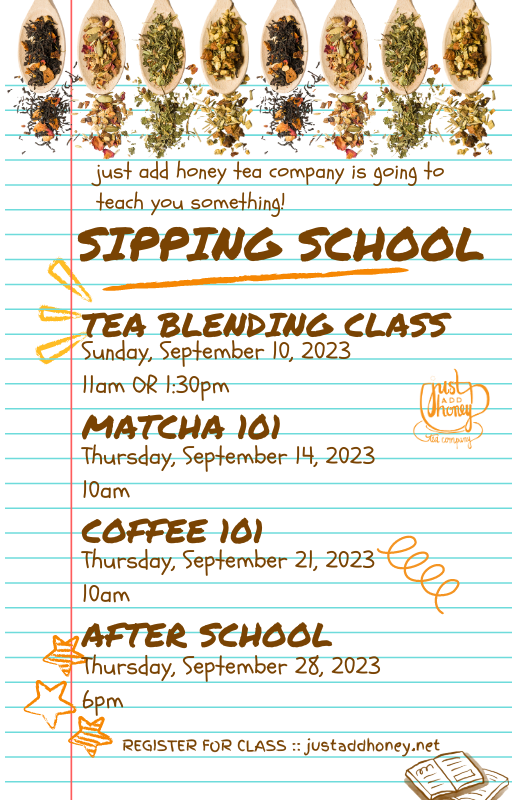 just add honey tea company is going to
teach you something!
SIPPING SCHOOL
TEA BLENDING CLASS
Sunday, September 10, 2023
11am OR 1:30pm
just
ADD
honey
tea company
MATCHA 101
Thursday, September 14, 2023
10am
COFFEE 101
Thursday, September 21, 2023
10am
AFTER SCHOOL
Thursday, September 28, 2023
6pm
REGISTER FOR CLASS :: justaddhoney.net